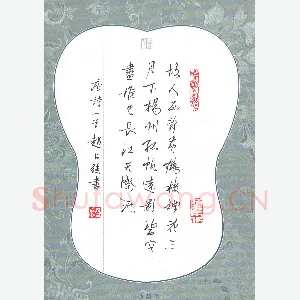 故人西辭黄鶴樓煙花三
月下揚州孤帆遠影碧空
盡惟見長江天際流
唐詩一首趙書
Shufawang.CN